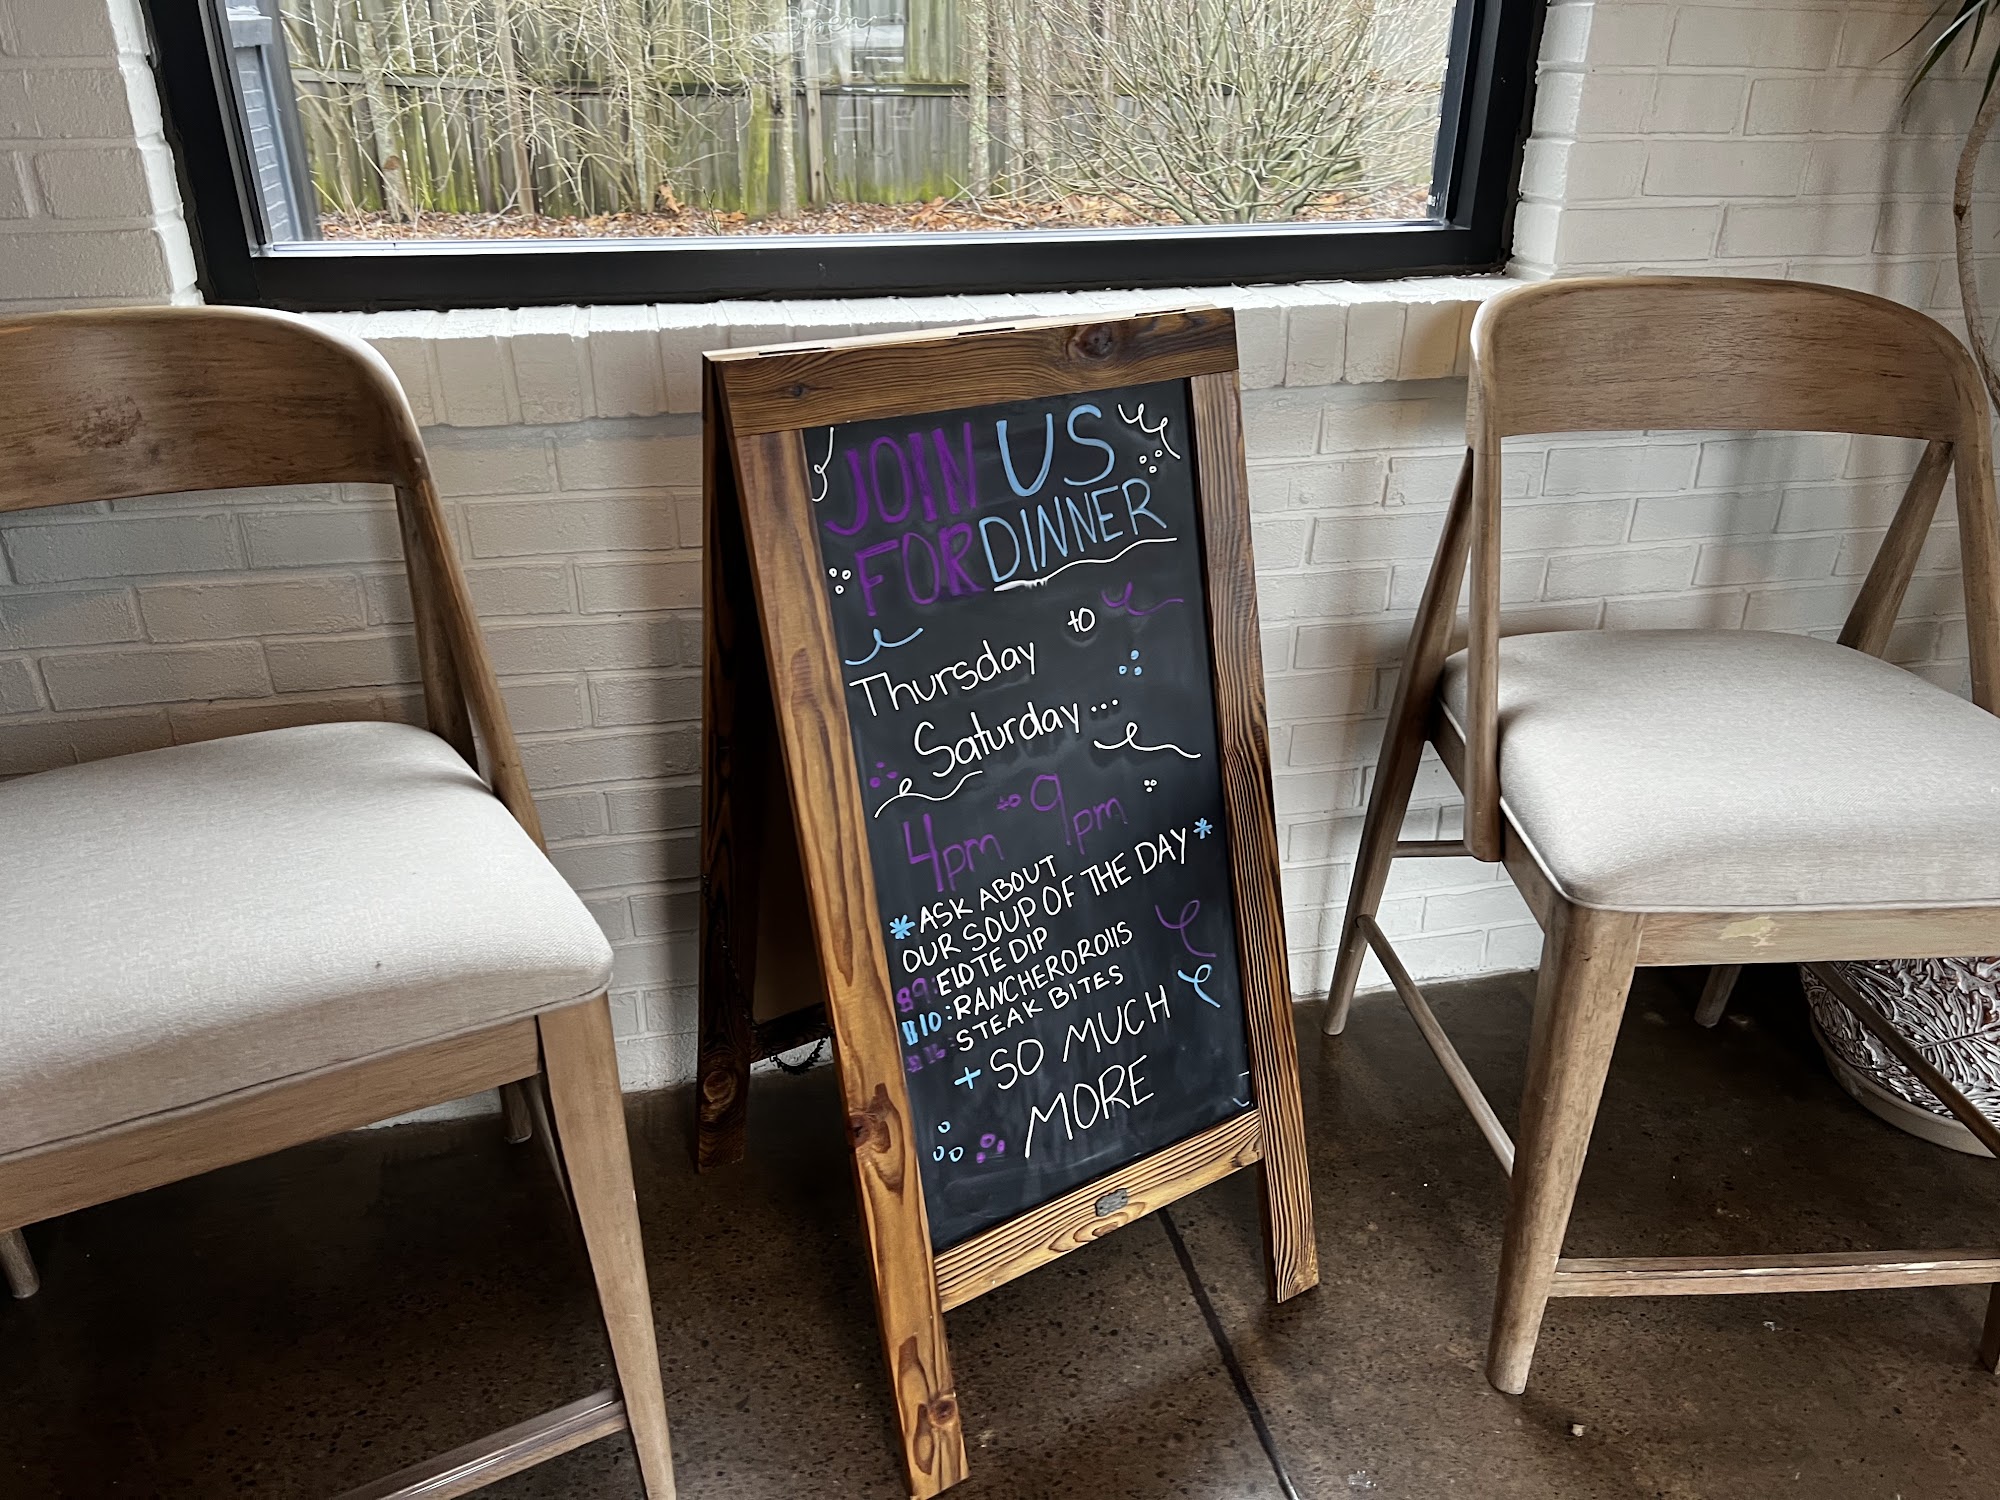 JOIN US
FOR DINNER
Thursday to
Saturday...
4pm to 9pm
*ASK ABOUT
OUR SOUP OF THE DAY*
$9: ElOTE DIP
$10: RANCHEROROllS
STEAK BITES
+ SO MUCH
MORE